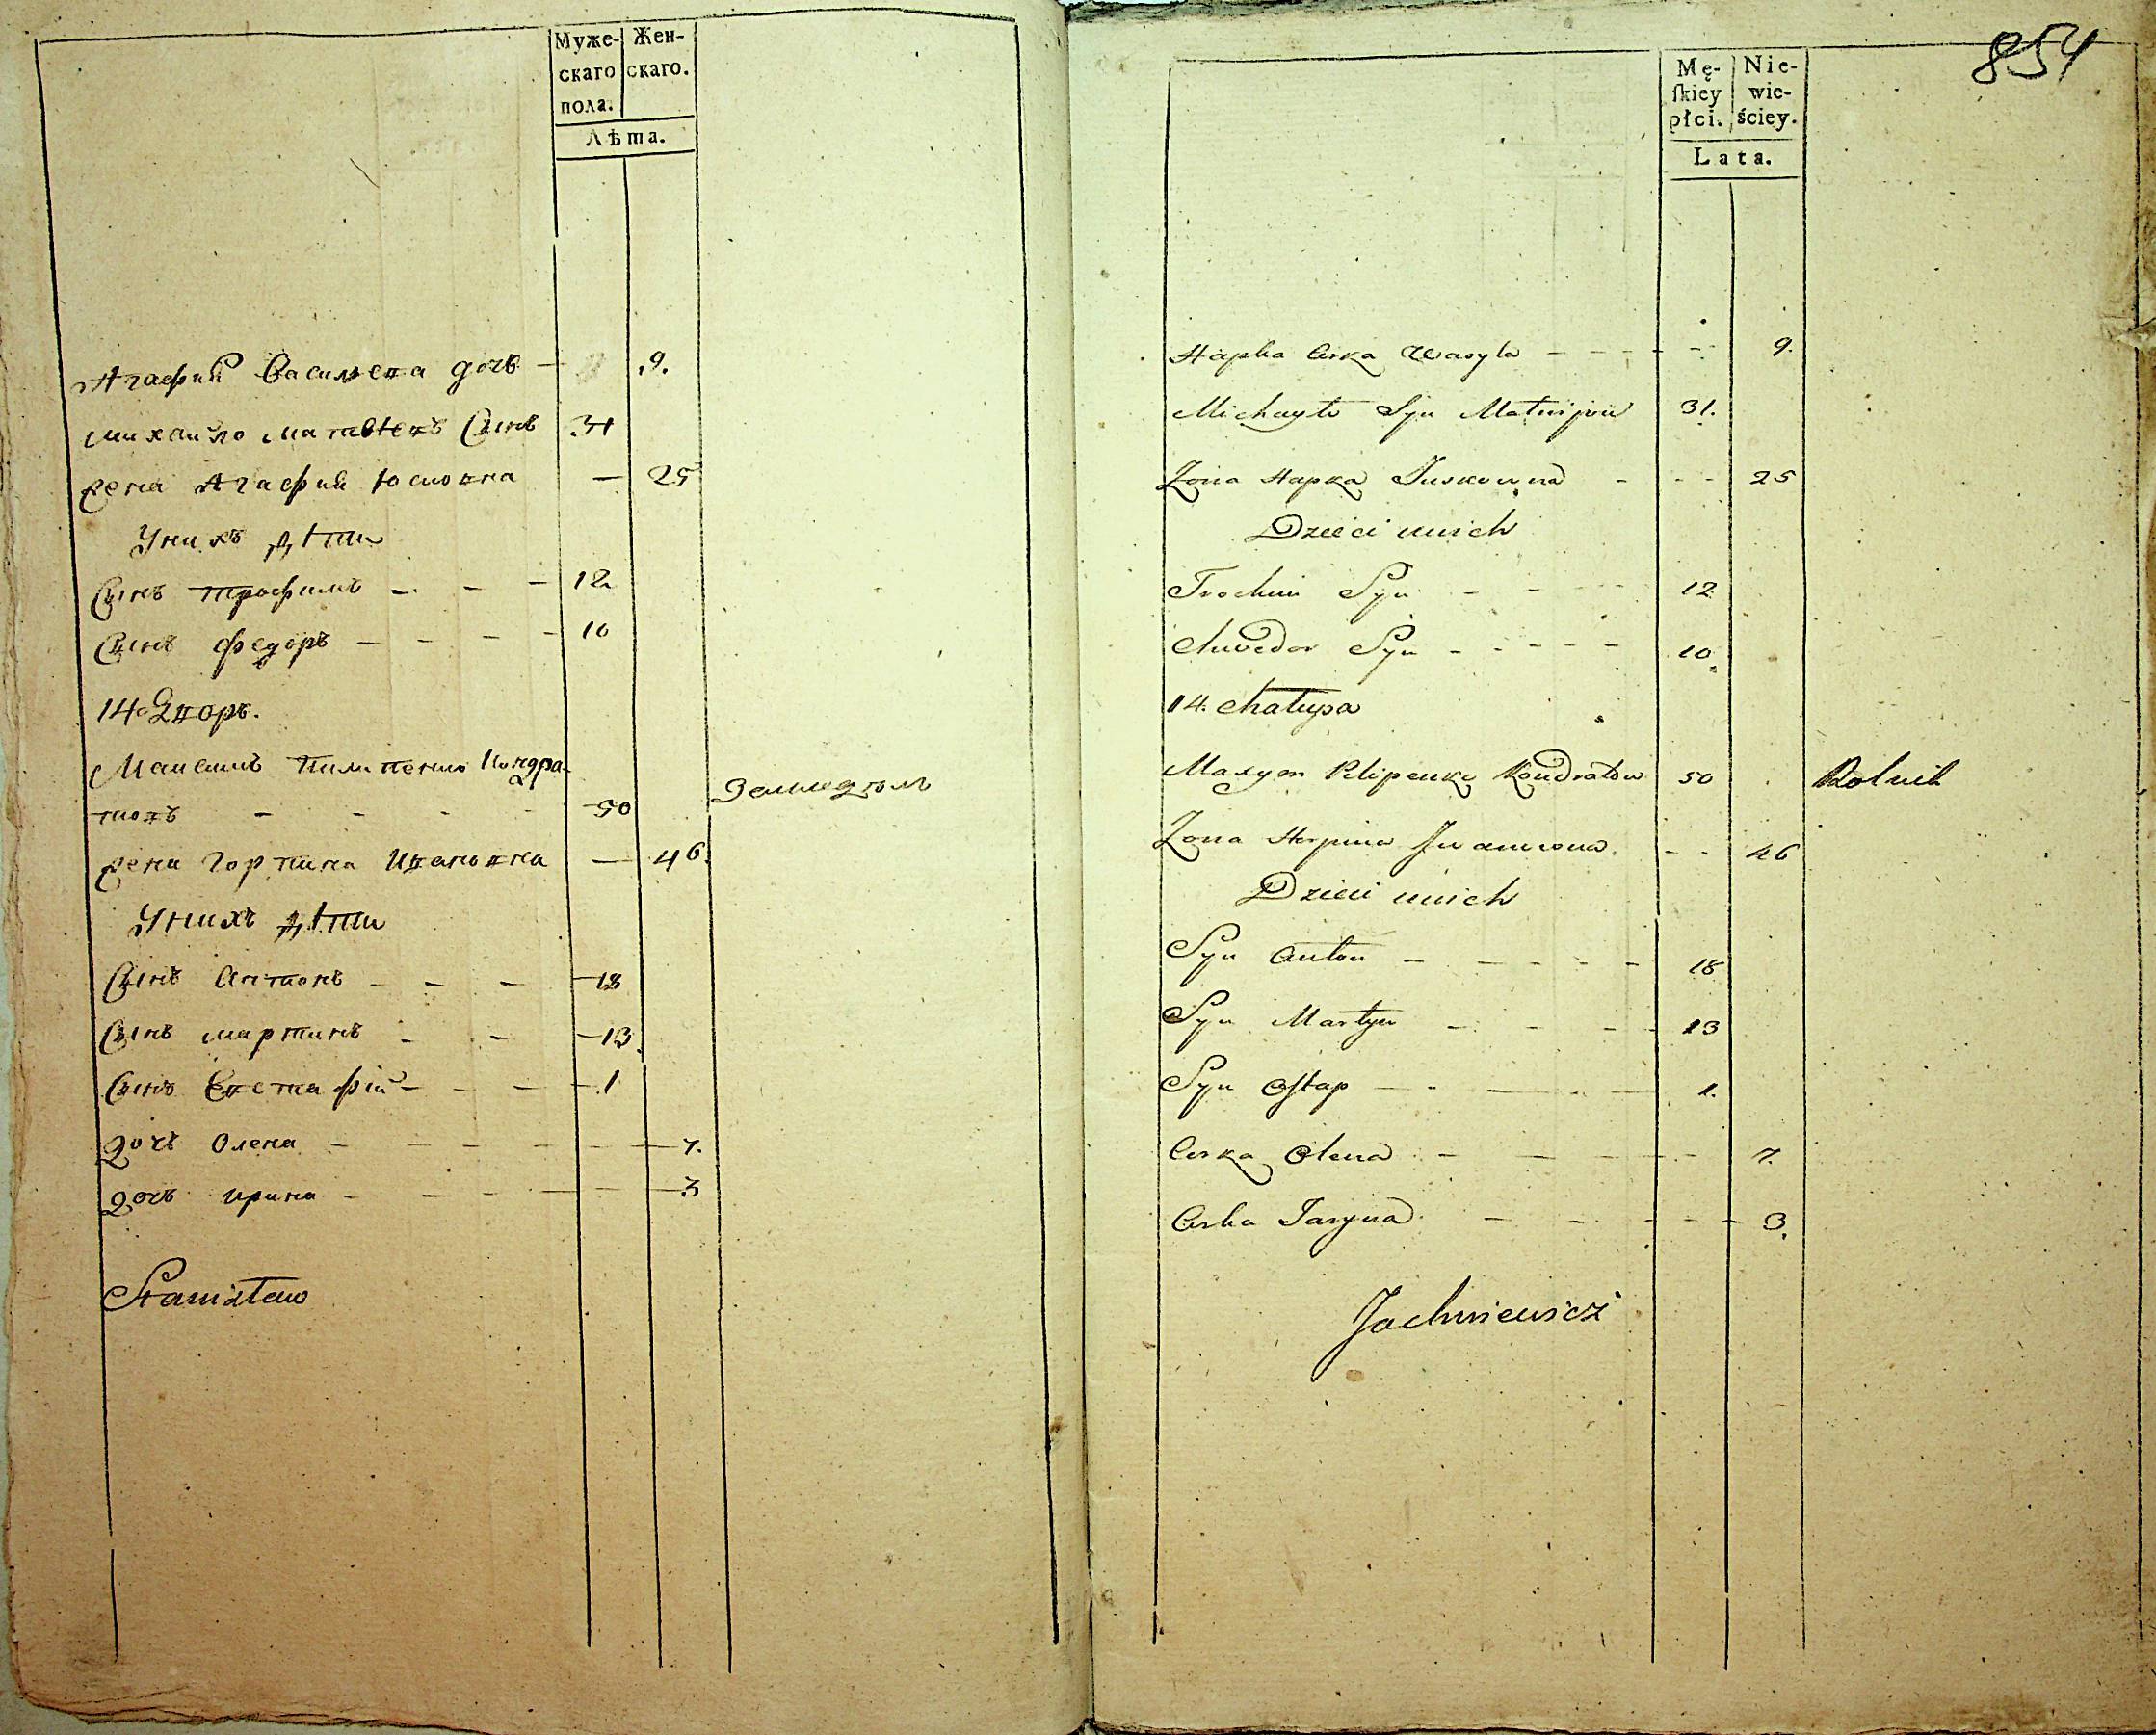 Муже-
скаго
пола.
Жен-
скаго.
Лѣта.
Агафия Василева дочь — .9.
Михайло Матвѣевъ Сынъ .31
Жена Агафия Юсковна — 25
Унихъ дѣти
Сынъ Трофимъ - - - 12
Сынъ Федоръ - - - - 10
14. Дворъ.
Максимъ Пилипенко Кондра-
товъ - - - - 50 Земледѣлъ
Жена Горпина Ивановна — 46.
Унихъ дѣти
Сынъ Антонъ - - - 18
Сынъ Мартинъ - - - 13.
Сынъ Евстафій - - - 1
Дочь Олена - - - - - 7.
Дочь Ирина - - - - - 3
Stanisław
854
Mę-
ſkiey
płci.
Nie-
wie-
ściey.
Lata.
Hapka Curka Wasyla - - - - - 9.
Michayło Syn Matwijow 31.
Żona Hapka Juskowna - - - 25
Dzieci unich
Trochim Syn - - 12
Chwedor Syn - - - - - 10.
14. Chałupa
Maxym Pilipenko Kondratow 50 Rolnik
Żona Horpina Iwanowna. - - 46
Dzieci unich
Syn Anton - - - - - 18
Syn Martyn - - - - 13
Syn Ostap - - - - 1.
Curka Olena - - - - - 7.
Curka Jaryna - - - - - 3.
Jachniewicz